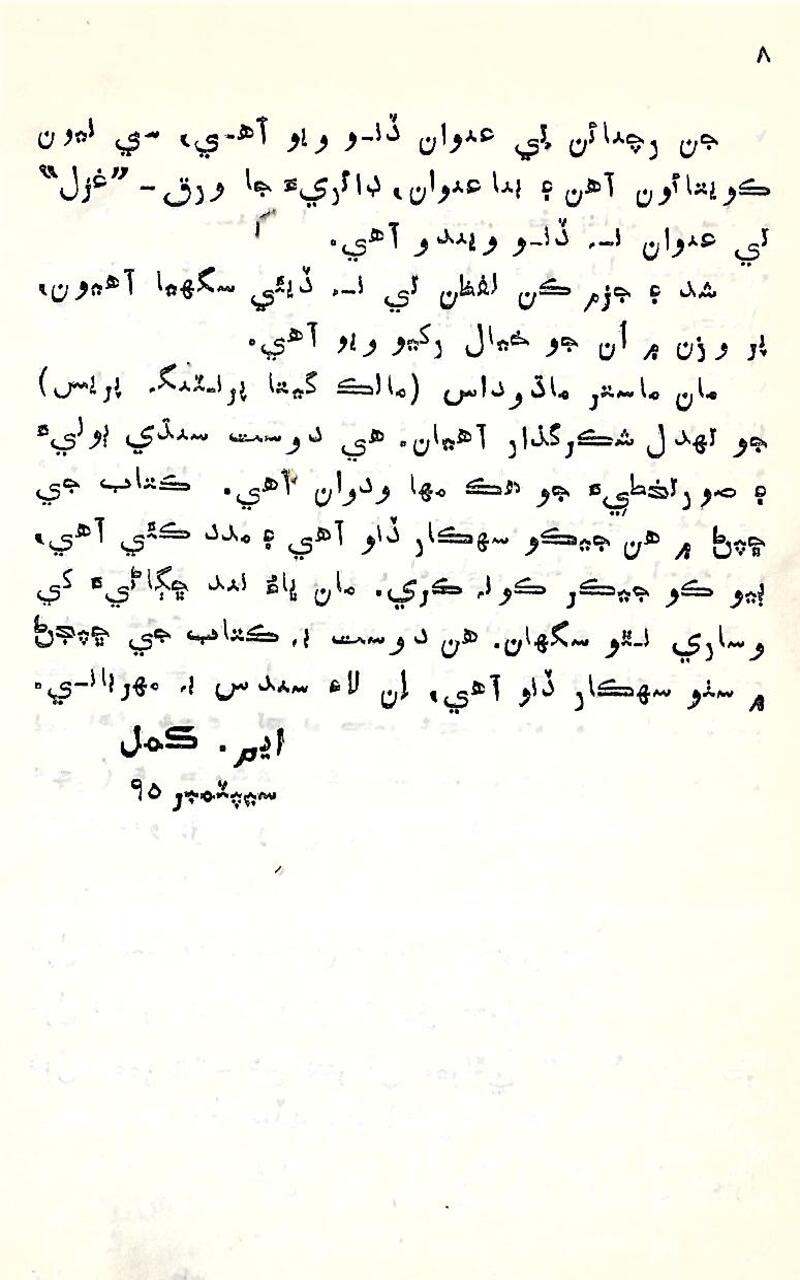 ٨
جن رچنائن تي عنوان ڏنو ويو آهي، سي نيون
ڪويتائون آهن ۽ بنا عنوان، ڊائريءَ جا ورق - ”غزل“
تي عنوان نہ ڏنو ويندو آهي.
شد ۽ جزم ڪن لفظن تي نہ ڏيئي سگهيا آهيون،
پر وزن ۾ اُن جو خيال رکيو ويو آهي.
مان ماستر ماڌوداس (مالڪ گيتا پرنٽنگ پريس)
جو تهدل شڪرگذار آهيان. هي دوست سنڌي ٻوليءَ
۽ صورتخطيءَ جو هڪ مها ودوان آهي. ڪتاب جي
ڇپڻ ۾ هن جيڪو سهڪار ڏنو آهي ۽ مدد ڪئي آهي،
ٻيو ڪو جيڪر ڪونہ ڪري. مان ڀاءُ نند ڇڳاڻيءَ کي
وساري نٿو سگهان. هن دوست بہ ڪتاب جي ڇپجڻ
۾ سٺو سهڪار ڏنو آهي، اِن لاءِ سندس بہ مهرباني.
ايم. ڪمل
سيپٽمبر ٩٥